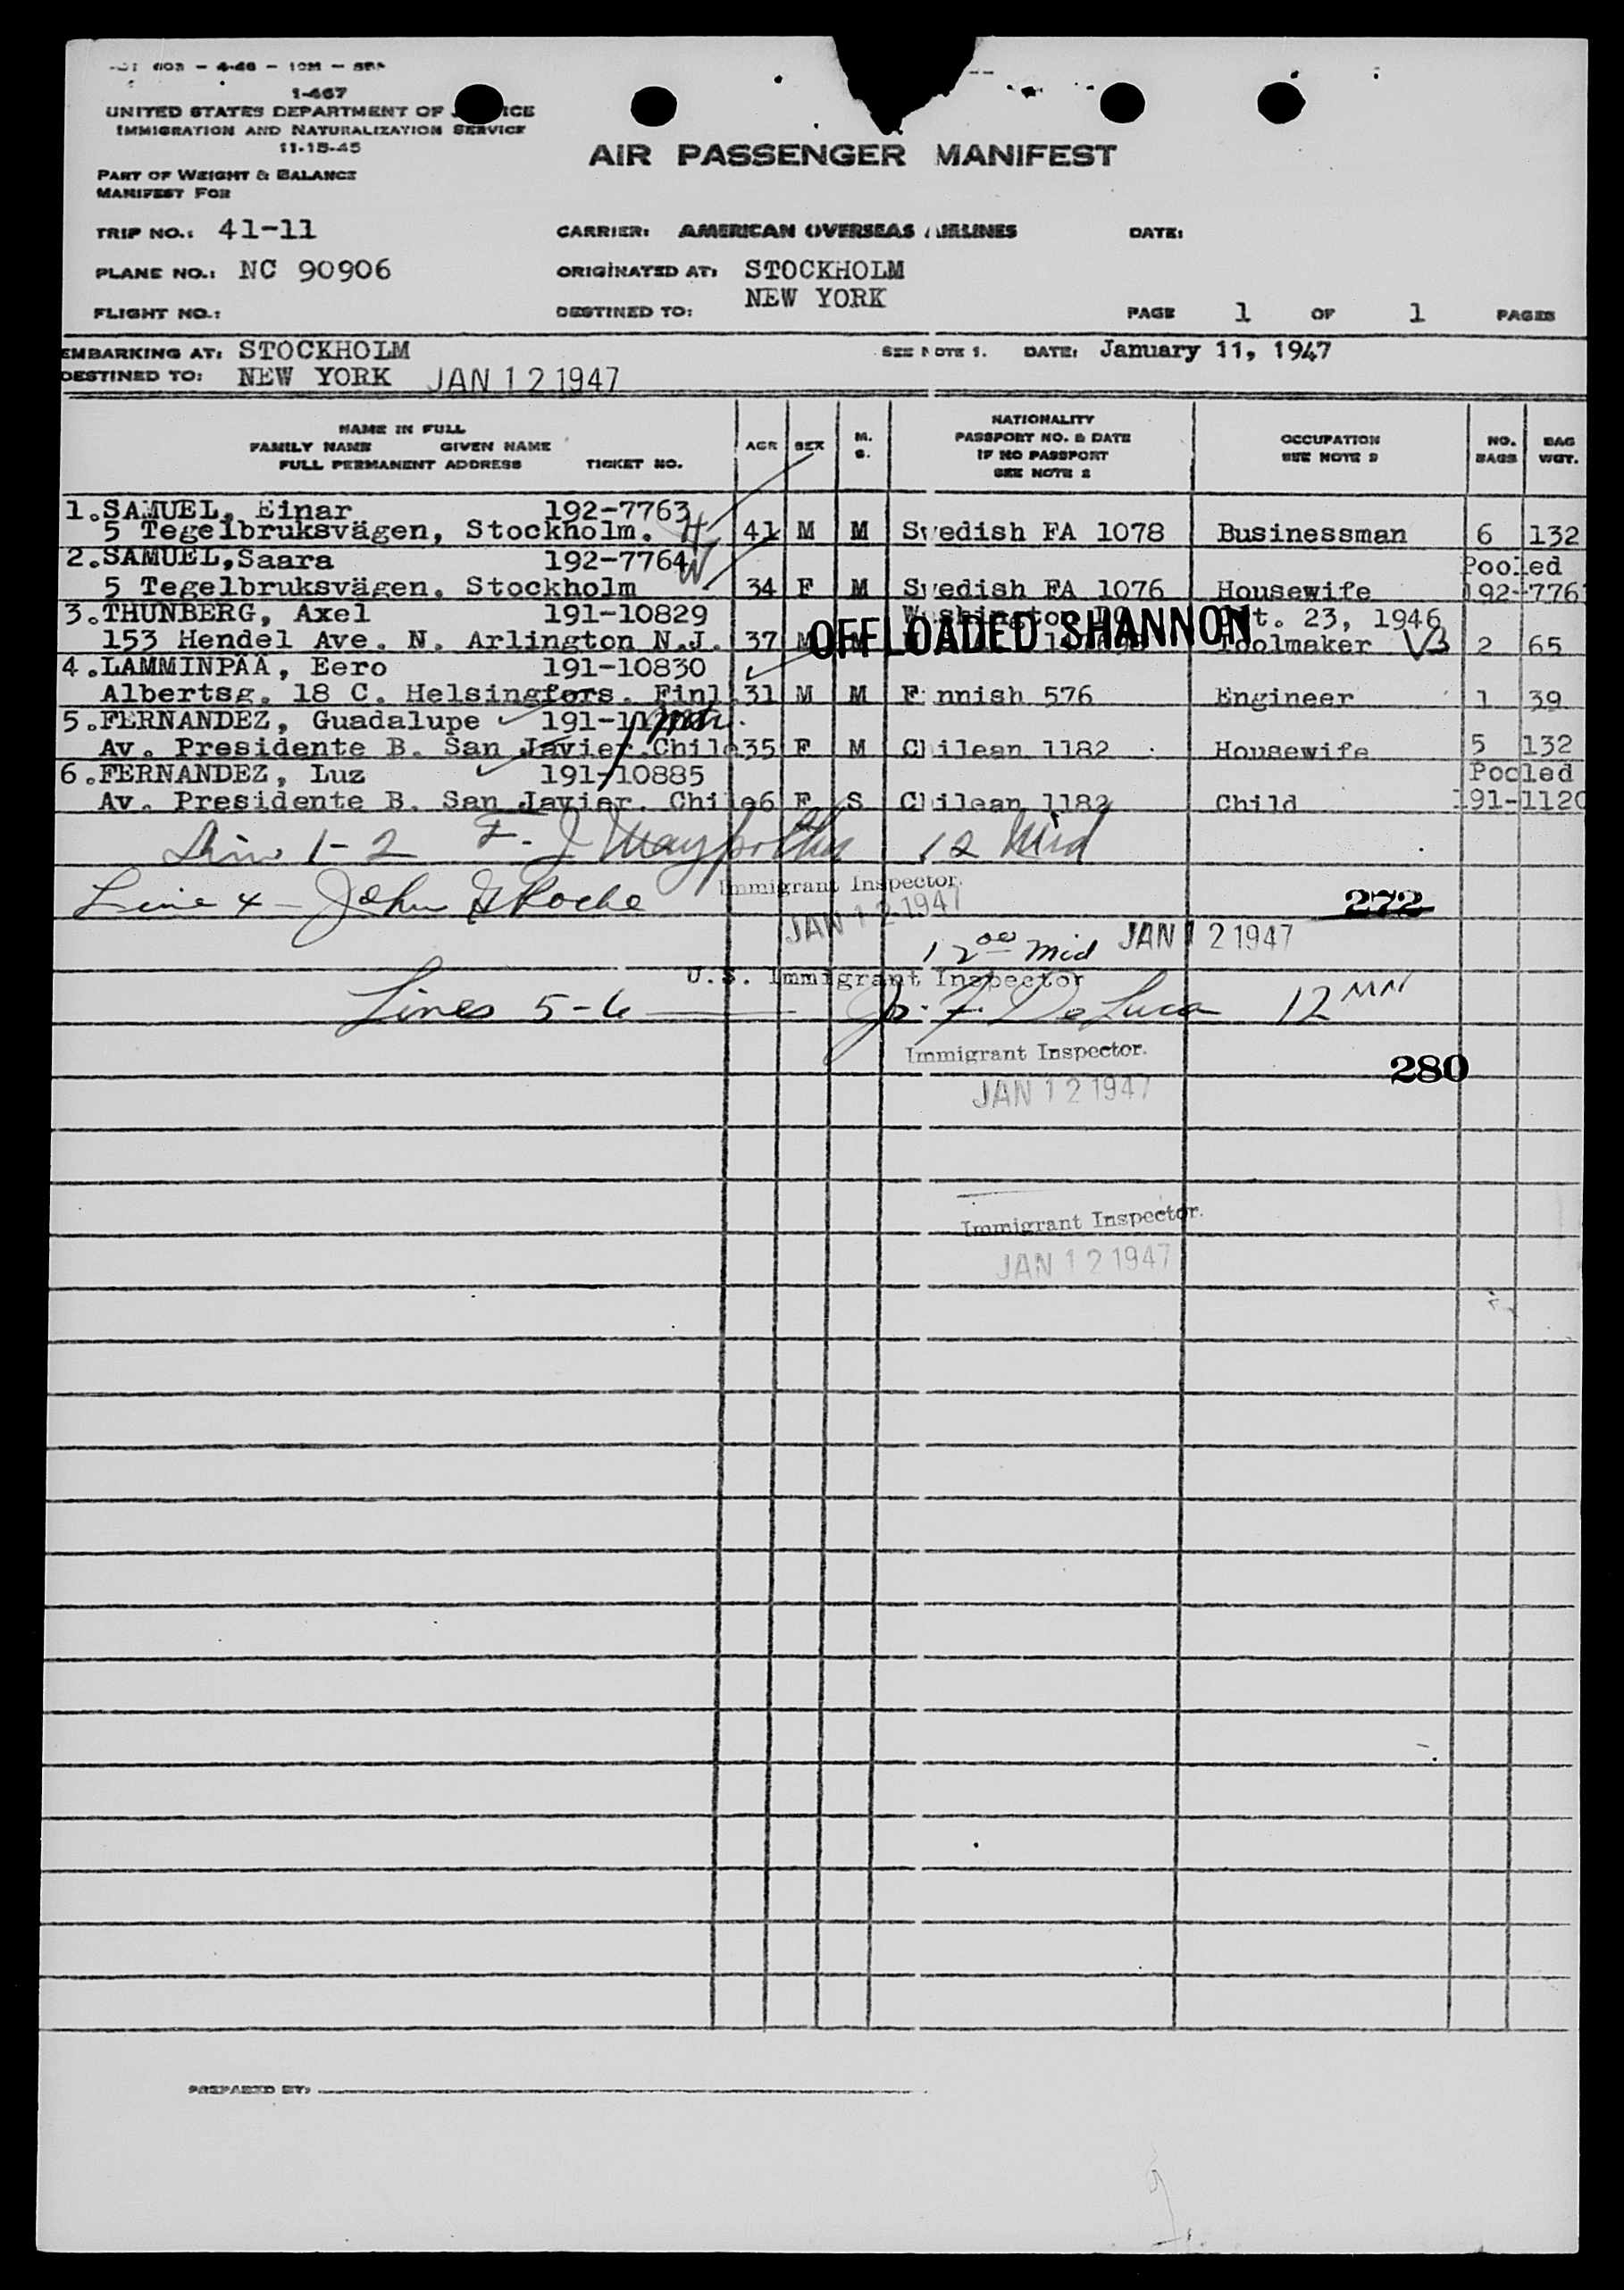 1-467
UNITED STATES DEPARTMENT OF
IMMIGRATION AND NATURALIZATION SERVICE
11-15-45
AIR PASSENGER MANIFEST
PART OF WEIGHT & BALANCE
MANIFEST FOR
TRIP NO.: 41-11 CARRIER: AMERICAN OVERSEAS AIRLINES DATE:
PLANE NO.: NC 90906 ORIGINATED AT: STOCKHOLM
FLIGHT NO.: DESTINED TO: NEW YORK PAGE 1 OF 1 PAGES
EMBARKING AT: STOCKHOLM SEE NOTE 1. DATE: January 11, 1947
DESTINED TO: NEW YORK JAN 12 1947
NAME IN FULL
FAMILY NAME GIVEN NAME
FULL PERMANENT ADDRESS TICKET NO.
AGE SEX M. S.
NATIONALITY
PASSPORT NO. & DATE
IF NO PASSPORT
SEE NOTE 2
OCCUPATION
SEE NOTE 3
NO. BAGS
BAG WGT.
1. SAMUEL, Einar 192-7763
5 Tegelbruksvägen, Stockholm. H 41 M M Swedish FA 1078 Businessman 6 132
2. SAMUEL, Saara 192-7764 W Pooled
5 Tegelbruksvägen. Stockholm 34 F M Swedish FA 1076 Housewife 192-776
3. THUNBERG, Axel 191-10829 Washington 23, 1946
153 Hendel Ave. N. Arlington N.J. 37 M M OFFLOADED SHANNON Toolmaker 2 65
4. LAMMINPÄÄ, Eero 191-10830
Albertsg. 18 C. Helsingfors. Finl. 31 M M Finnish 576 Engineer 1 39
5. FERNANDEZ, Guadalupe
Av. Presidente B. San Javier. Chile 35 F M Chilean 1182 Housewife 5 132
6. FERNANDEZ, Luz 191-10885 Pooled
Av. Presidente B. San Javier. Chile 6 F S Chilean 1182 Child 191-1120
1-2 F. J. 12 Mid
Immigrant Inspector.
Line 4 - John Roche 272
JAN 12 1947
12 00 mid JAN 12 1947
U.S. Immigrant Inspector
Lines 5-6 De Luca 12 MN
Immigrant Inspector.
280
JAN 12 1947
Immigrant Inspector.
JAN 12 1947
PREPARED BY: